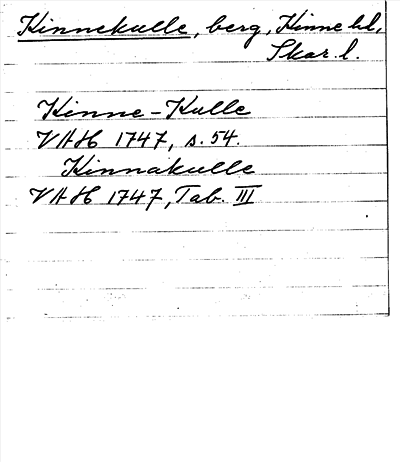 Kinnekulle, berg, Kinne hd,
Skar. l.
Kinne-Kulle
VAH 1747, s. 54.
Kinnakulle
VAH 1747, Tab. III